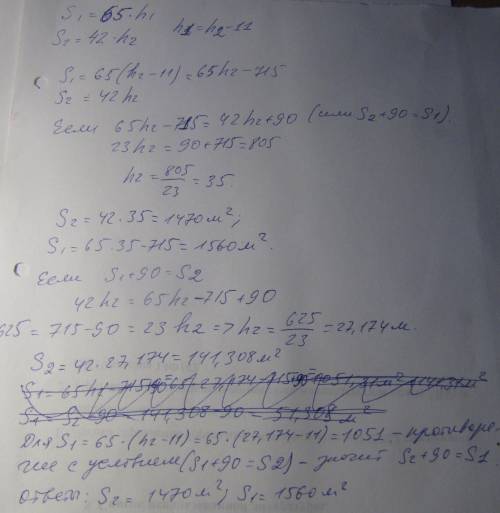 S₁ = 65·h₁
S₂ = 42·h₂ h1 = h₂-11
S₁ = 65(h₂-11) = 65h₂-715
S₂ = 42h₂
Если 65h₂-715 = 42h₂+90 (или S₂+90=S1).
23h₂ = 90+715 = 805
h₂ = 805/23 = 35.
S₂ = 42·35 = 1470м²;
S₁ = 65·35-715 = 1560м².
Если S₁+90 = S₂
42h₂ = 65h₂-715+90
625 = 715-90 = 23h2 => h₂ = 625/23 = 27,174м.
S₂ = 42·27,174 = 141,308м²
S₁ = S₂-90 = 141,308-90 = 51,308 м²
Для S₁ = 65·(h₂-11) = 65·(27,174-11) = 1051 - противоре-
чие с условием (S₁+90=S2) - значит S₂+90=S1
Ответы: S₂ = 1470м²; S₁ = 1560м²